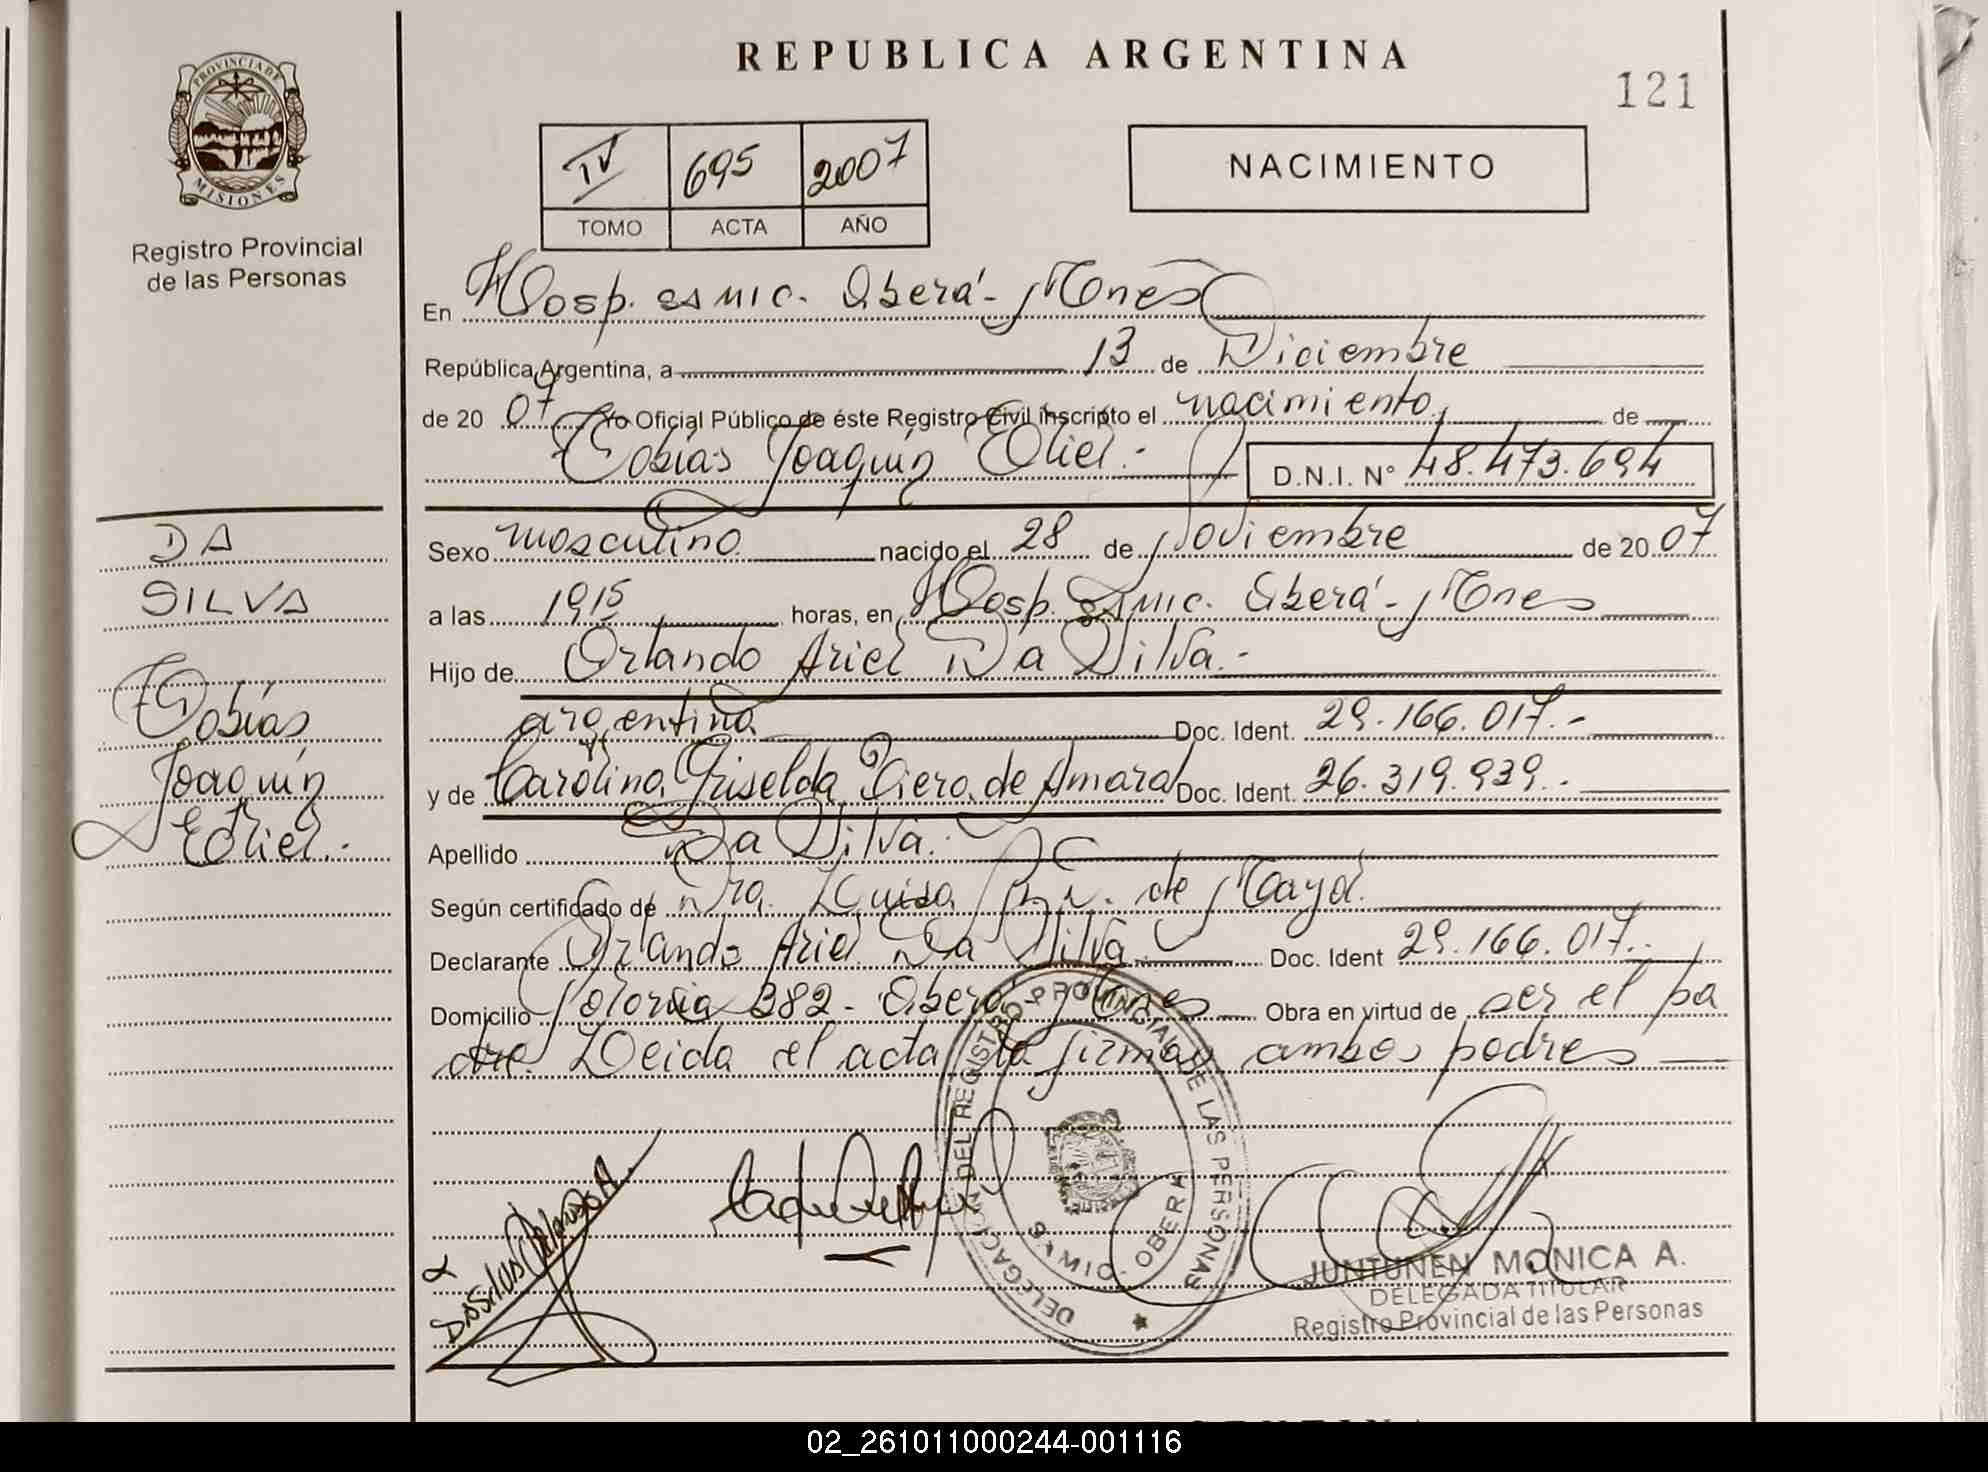 REPUBLICA ARGENTINA
121
PROVINCIA DE
MISIONES
Registro Provincial
de las Personas
IV 695 2007
TOMO ACTA AÑO
NACIMIENTO
En Hosp. SAMIC. Oberá - Mnes
República Argentina, a 13 de Diciembre
de 20 07 Yo Oficial Público de éste Registro Civil inscripto el nacimiento de
Tobías Joaquín Eliel.- D.N.I. N° 48.473.694
Sexo masculino nacido el 28 de Noviembre de 20 07
a las 1915 horas, en Hosp. SAMIC. Oberá - Mnes
Hijo de Orlando Ariel Da Silva.-
argentina Doc. Ident. 29.166.017.-
y de Carolina Griselda Viera de Amaral Doc. Ident. 26.319.939.-
Apellido Da Silva.-
Según certificado de Dra. Luisa de Mayol.
Declarante Orlando Ariel Da Silva Doc. Ident 29.166.017.-
Domicilio Polonia 382 - Oberá Mnes Obra en virtud de ser el pa
dre. Leida el acta la firman ambos padres
DA
SILVA
Tobías
Joaquín
Eliel.-
DELEGACION DEL REGISTRO PROVINCIAL DE LAS PERSONAS
OBERA
JUNTUNEN MONICA A.
DELEGADA TITULAR
Registro Provincial de las Personas
02_261011000244-001116